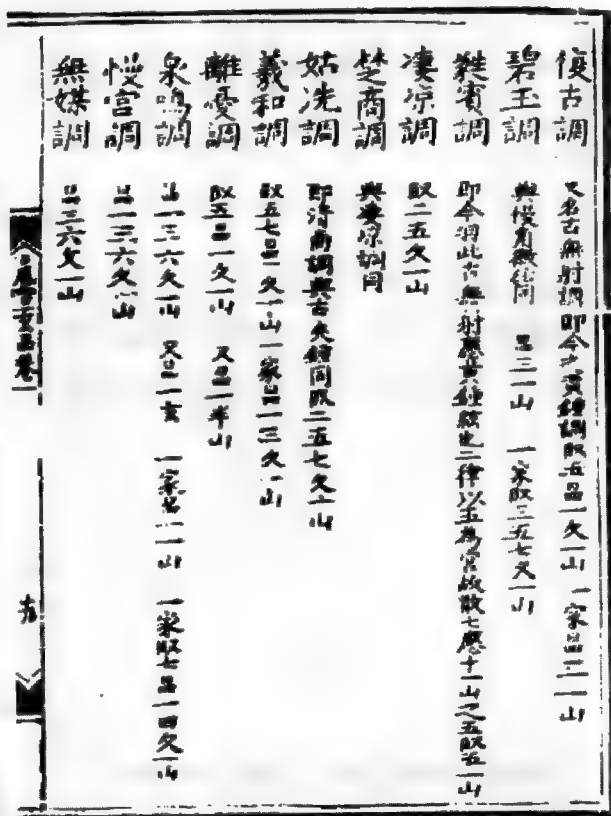 復古調 又名古無射調即今之黃鐘調取五昌一久一山 一家昌二一山
碧玉調 與慢角徵絃同 昌三一山 一家取三五七久一山
蕤賓調 即今羽此古無射蕤黃鐘絃也二律以五為宮故散七應十一山之五取五一山
凄凉調 取二五久一山
楚商調 與凄凉調同
姑洗調 即清商調與古夾鐘同取二五七久一山
羲和調 取五七昌一久一山一家昌一三久一山
離憂調 取五昌一久一山 又昌一半山
泉鳴調 昌一三六久一山 又昌一 一家昌一一山 一家取七昌一四久一山
慢宮調 昌一三六久一山
無媒調 昌三六久一山
卷一